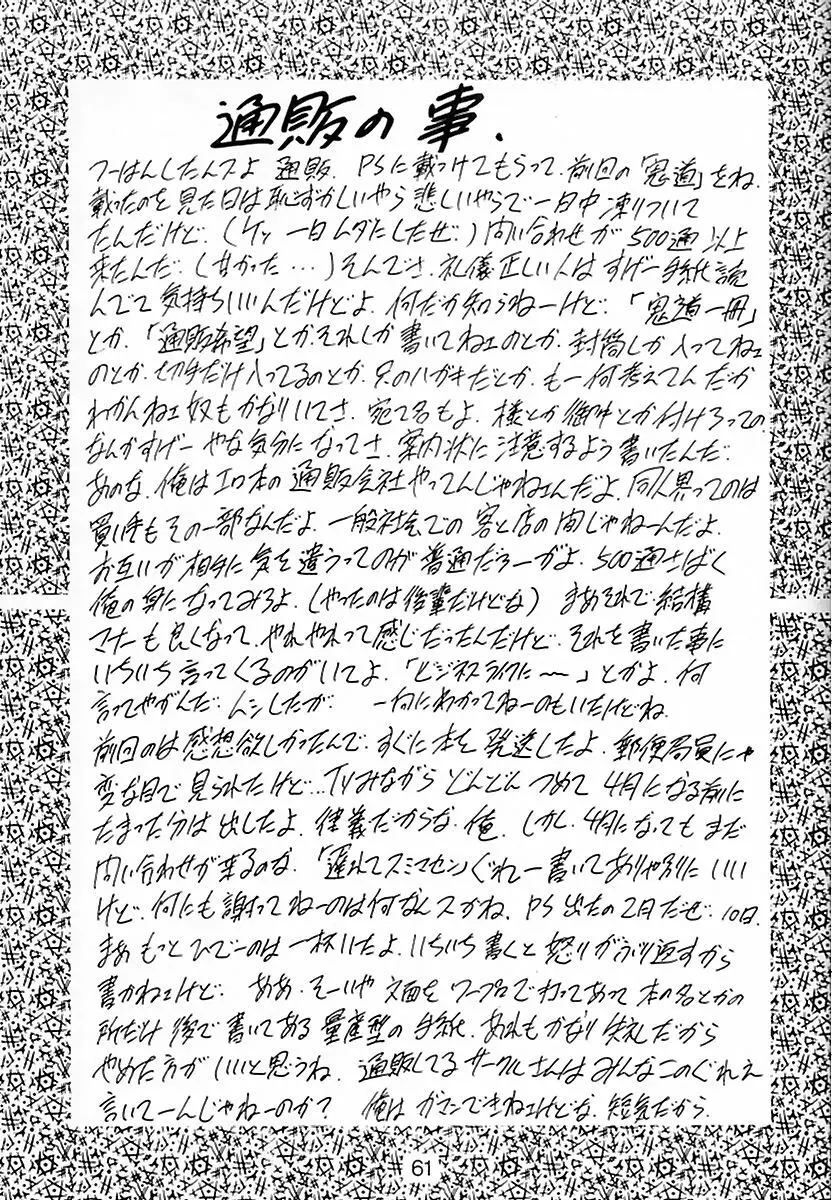 通販の事.
つーはんしたんスよ 通販. PSに載っけてもらって. 前回の「鬼道」をね.
載ったのを見た日は恥ずかしいやら悲しいやらで一日中凍りついて
たんだけど. (ケッ 一日ムダにしたぜ.) 問い合わせが500通以上
来たんだ. (甘かった…) そんでさ. 礼儀正しい人はすげー手紙読
んでて気持ちいいんだけどよ. 何だか知らねーけど. 「鬼道一冊」
とか. 「通販希望」とかそれしか書いてねェのとか. 封筒しか入ってねェ
のとか. 切手だけ入ってるのとか. 只のハガキだとか. もー何考えてんだか
わかんねェ奴もかなりいてさ. 宛て名もよ. 様とか御中とか付けろっての.
なんかすげー やな気分になってさ. 案内状に注意するよう書いたんだ.
あのな. 俺はエロ本の通販会社やってんじゃねェんだよ. 同人界ってのは
買い手もその一部なんだよ. 一般社会での客と店の間じゃねーんだよ.
お互いが相手に気を遣うってのが普通だろーがよ. 500通さばく
俺の身になってみろよ. (やったのは後輩だけどな) まあそれで結構
マナーも良くなって. やれやれって感じだったんだけど. それを書いた事に
いちいち言ってくるのがいてよ. 「ビジネスライクに〜」とかよ. 何
言ってやがんだ. ムシしたが. 一向にわかってねーのもいたけどね.
前回のは感想欲しかったんで. すぐに本を発送したよ. 郵便局員にゃ
変な目で見られたけど… TVみながら どんどんつめて 4月になる前に
たまった分は出したよ. 律義だからな. 俺. しかし. 4月になってもまだ
問い合わせが来るのな. 「遅れてスミマセン」ぐれー書いてありゃ別にいい
けど. 何にも謝ってねーのは何なんスかね. PS出たの2月だぜ. 10日.
まあ もっとひでーのは一杯いたよ. いちいち書くと怒りがぶり返すから
書かねェけど. ああ. そーいや 文面をワープロで打ってあって 本の名とかの
所だけ後で書いてある量産型の手紙. あれもかなり失礼だから
やめた方がいいと思うね. 通販してるサークルさんはみんなこのぐれえ
言いてーんじゃねーのか? 俺はガマンできねェけどな. 短気だから.
61